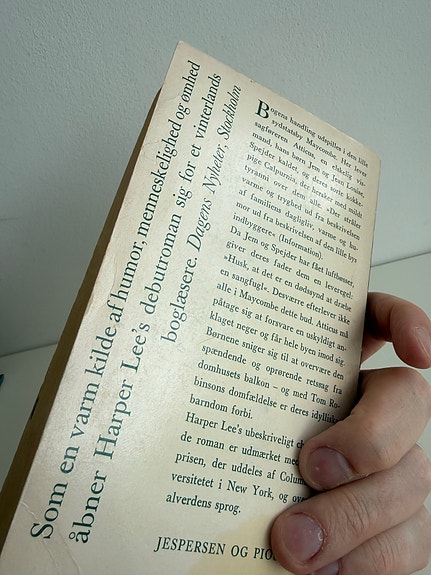 Som en varm kilde af humor, menneskelighed og ømhed
åbner Harper Lee's debutroman sig for et vinterlands
boglæsere. Dagens Nyheter, Stockholm
Bogens handling udspilles i den lille
sydstatsby Maycombe. Her lever
sagføreren Atticus, en elskelig vis-
mand, hans børn Jem og Jean Louise,
Spejder kaldet, og deres sorte kokke-
pige Calpurnia, der hersker med mildt
tyranni over dem alle. »Der stråler
varme og tryghed ud fra beskrivelsen
af familiens dagligliv, varme og hu-
mor ud fra beskrivelsen af den lille bys
indbyggere« (Information).
Da Jem og Spejder har fået luftbøsser,
giver deres fader dem en leveregel:
»Husk, at det er en dødssynd at dræbe
en sangfugl«. Desværre efterlever ikke
alle i Maycombe dette bud. Atticus må
påtage sig at forsvare en uskyldigt an-
klaget neger og får hele byen imod sig.
Børnene sniger sig til at overvære den
spændende og oprørende retssag fra
domhusets balkon – og med Tom Ro-
binsons domfældelse er deres idylliske
barndom forbi.
Harper Lee's ubeskriveligt
de roman er udmærket med
prisen, der uddeles af
versitetet i New York, og
alverdens sprog.
JESPERSEN OG